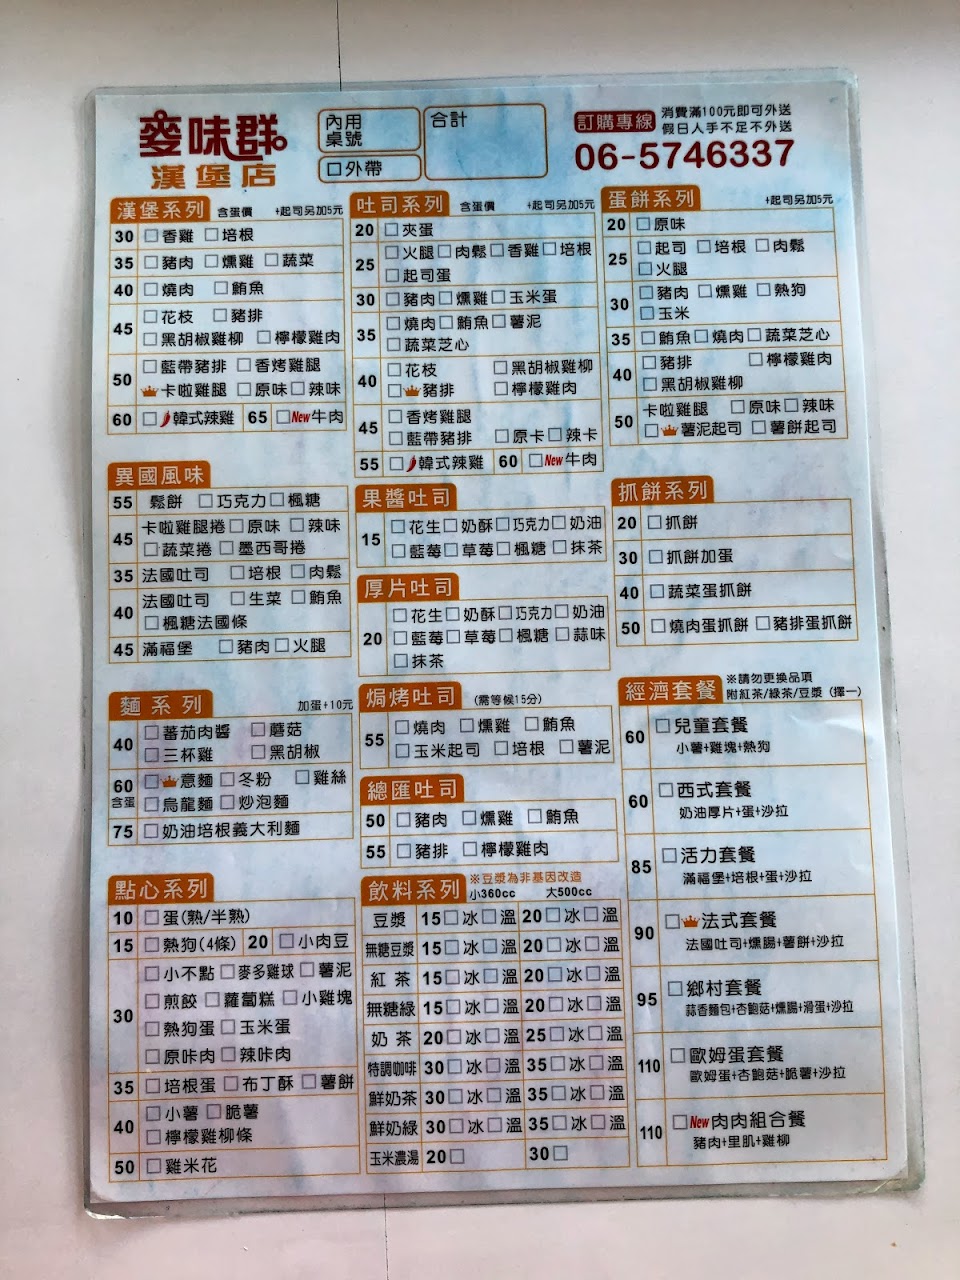 麥味群
漢堡店
內用
桌號
外帶
合計
訂購專線
消費滿100元即可外送
假日人手不足不外送
06-5746337
漢堡系列 含蛋價 +起司另加5元
30 香雞 培根
35 豬肉 燻雞 蔬菜
40 燒肉 鮪魚
45 花枝 豬排
黑胡椒雞柳 檸檬雞肉
50 藍帶豬排 香烤雞腿
卡啦雞腿 原味 辣味
60 韓式辣雞 65 New牛肉
吐司系列 含蛋價 +起司另加5元
20 夾蛋
25 火腿 肉鬆 香雞 培根
起司蛋
30 豬肉 燻雞 玉米蛋
35 燒肉 鮪魚 薯泥
蔬菜芝心
40 花枝 黑胡椒雞柳
豬排 檸檬雞肉
45 香烤雞腿
藍帶豬排 原卡 辣卡
55 韓式辣雞 60 New牛肉
蛋餅系列 +起司另加5元
20 原味
25 起司 培根 肉鬆
火腿
30 豬肉 燻雞 熱狗
玉米
35 鮪魚 燒肉 蔬菜芝心
40 豬排 檸檬雞肉
黑胡椒雞柳
50 卡啦雞腿 原味 辣味
薯泥起司 薯餅起司
異國風味
55 鬆餅 巧克力 楓糖
45 卡啦雞腿捲 原味 辣味
蔬菜捲 墨西哥捲
35 法國吐司 培根 肉鬆
40 法國吐司 生菜 鮪魚
楓糖法國條
45 滿福堡 豬肉 火腿
果醬吐司
15 花生 奶酥 巧克力 奶油
藍莓 草莓 楓糖 抹茶
厚片吐司
20 花生 奶酥 巧克力 奶油
藍莓 草莓 楓糖 蒜味
抹茶
抓餅系列
20 抓餅
30 抓餅加蛋
40 蔬菜蛋抓餅
50 燒肉蛋抓餅 豬排蛋抓餅
麵系列 加蛋+10元
40 蕃茄肉醬 蘑菇
三杯雞 黑胡椒
60 含蛋 意麵 冬粉 雞絲
烏龍麵 炒泡麵
75 奶油培根義大利麵
焗烤吐司 (需等候15分)
55 燒肉 燻雞 鮪魚
玉米起司 培根 薯泥
總匯吐司
50 豬肉 燻雞 鮪魚
55 豬排 檸檬雞肉
經濟套餐 ※請勿更換品項
附紅茶/綠茶/豆漿 (擇一)
60 兒童套餐
小薯+雞塊+熱狗
60 西式套餐
奶油厚片+蛋+沙拉
85 活力套餐
滿福堡+培根+蛋+沙拉
90 法式套餐
法國吐司+燻腸+薯餅+沙拉
95 鄉村套餐
蒜香麵包+杏鮑菇+燻腸+滑蛋+沙拉
110 歐姆蛋套餐
歐姆蛋+杏鮑菇+脆薯+沙拉
110 New肉肉組合餐
豬肉+里肌+雞柳
點心系列
10 蛋(熟/半熟)
15 熱狗(4條) 20 小肉豆
30 小不點 麥多雞球 薯泥
煎餃 蘿蔔糕 小雞塊
熱狗蛋 玉米蛋
原味肉 辣味肉
35 培根蛋 布丁酥 薯餅
40 小薯 脆薯
檸檬雞柳條
50 雞米花
飲料系列 ※豆漿為非基因改造
小360cc 大500cc
豆漿 15 冰 溫 20 冰 溫
無糖豆漿 15 冰 溫 20 冰 溫
紅茶 15 冰 溫 20 冰 溫
無糖綠 15 冰 溫 20 冰 溫
奶茶 20 冰 溫 25 冰 溫
特調咖啡 30 冰 溫 35 冰 溫
鮮奶茶 30 冰 溫 35 冰 溫
鮮奶綠 30 冰 溫 35 冰 溫
玉米濃湯 20 30